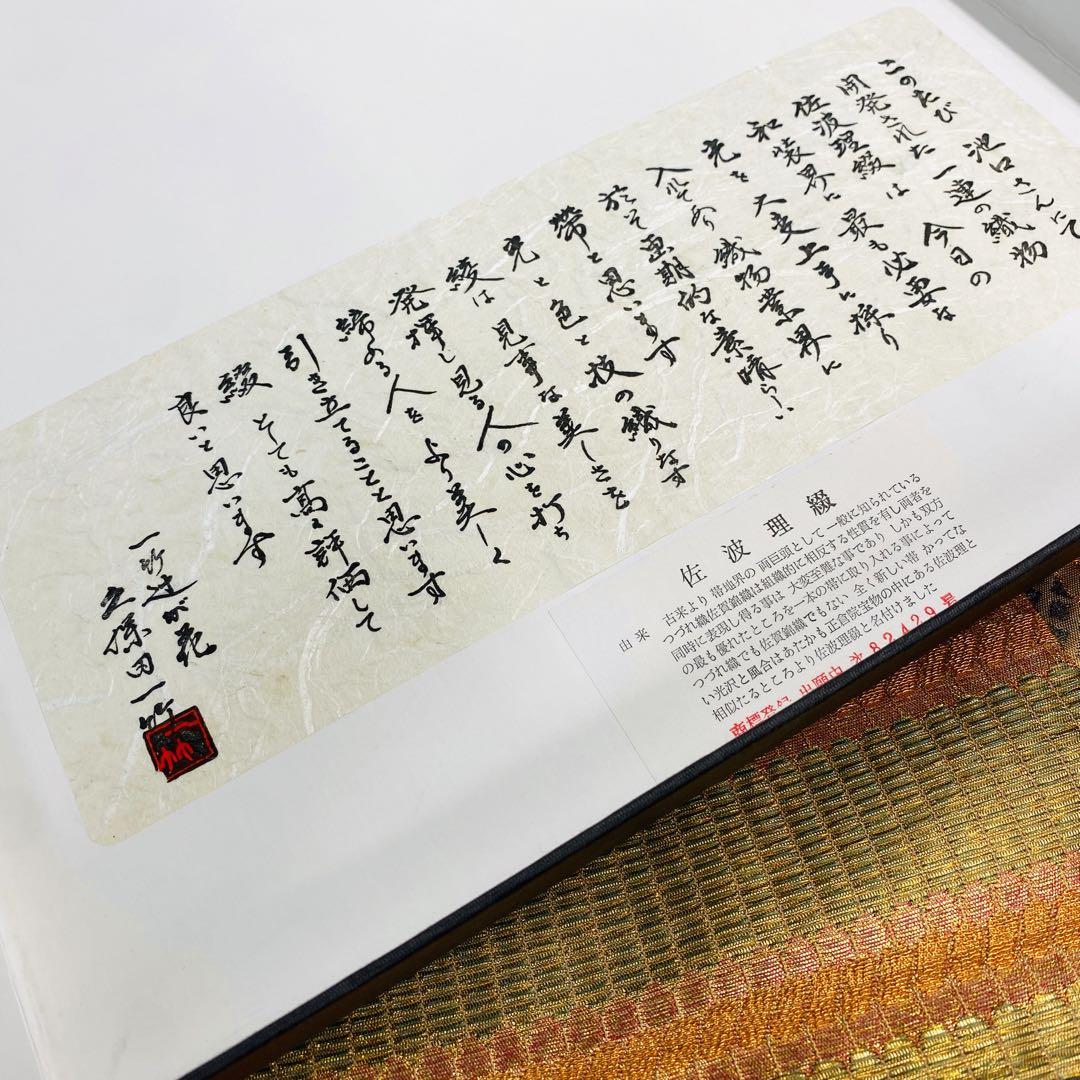 このたび 池口さんにて
開発された 一連の織物
佐波理綴は 今日の
和装界に 最も必要な
光を大変上手に採り
入れてあり 織物業界に
於いて画期的な素晴らしい
帯と思います
光と色と技の織りなす
綾は 見事な美しさを
発揮し見る人の心を打ち
締める人をより美しく
引き立てることと思います
綴 とても高く評価して
良いと思います
一竹辻が花
久保田一竹
佐波理綴
由来 古来より 帯地界の 両巨頭として 一般に知られている
つづれ織佐賀錦織は組織的に相反する性質を有し両者を
同時に表現し得る事は 大変至難な事であり しかも双方
の最も優れたところを一本の帯に取り入れる事によって
つづれ織でも佐賀錦織でもない 全く新しい帯 かってな
い光沢と風合はあたかも正倉院宝物の中にある佐波理と
相似たるところより佐波理綴と名付けました
商標登録 出願中 次82429号